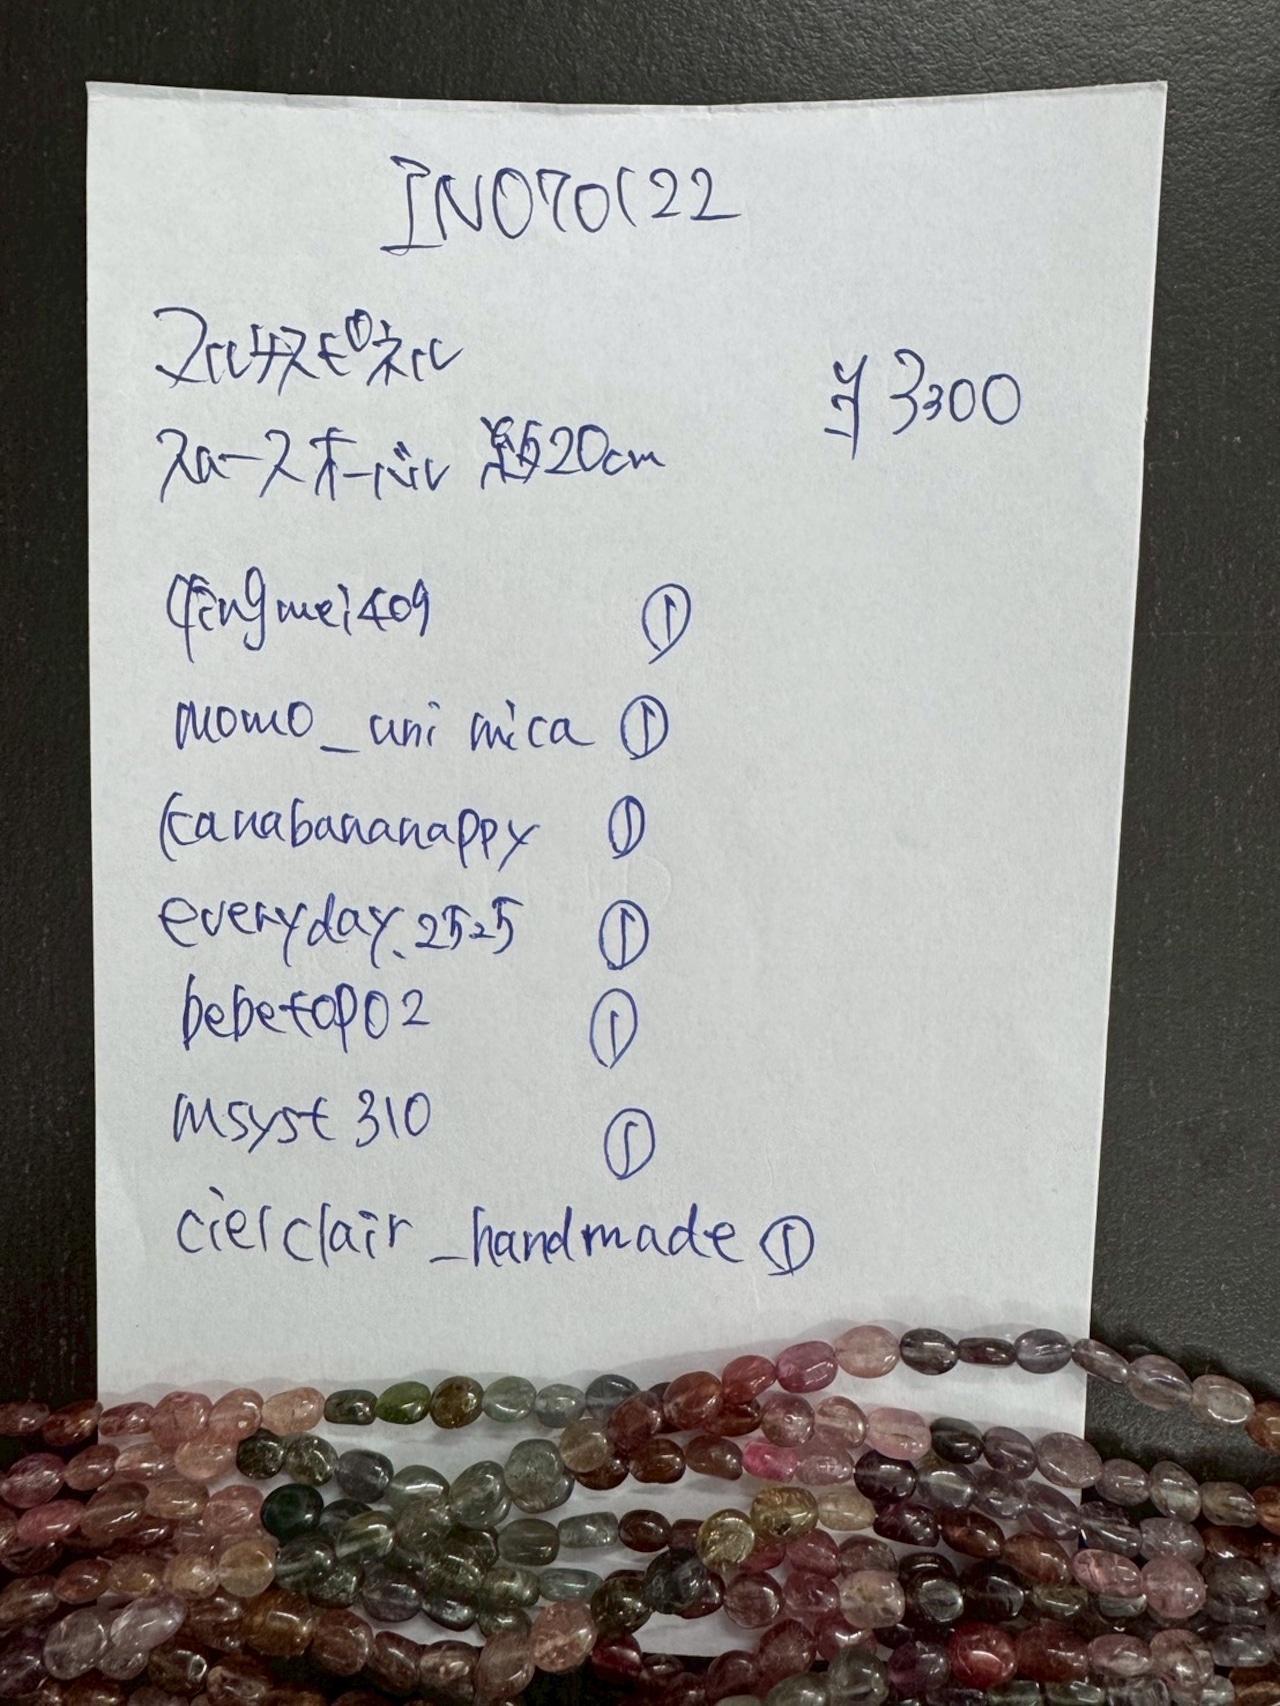 INO70122
マルチスピネル
¥3300
スムースオーバル 約20cm
qingmei409 ①
momo_uni mica ①
kanabananappy ①
everyday.2525 ①
bebetopo2 ①
msyst310 ①
cielclair_handmade ①